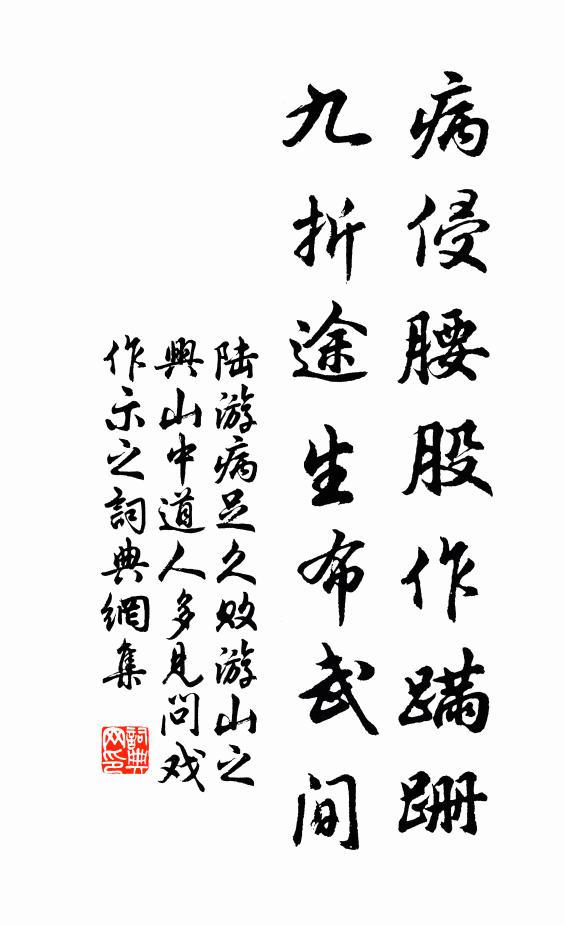 病侵腰股作蹒跚
九折途生布武间
陆游病足久败游山之
興山中道人多见问戏
作示之詞典網集
詞典网印